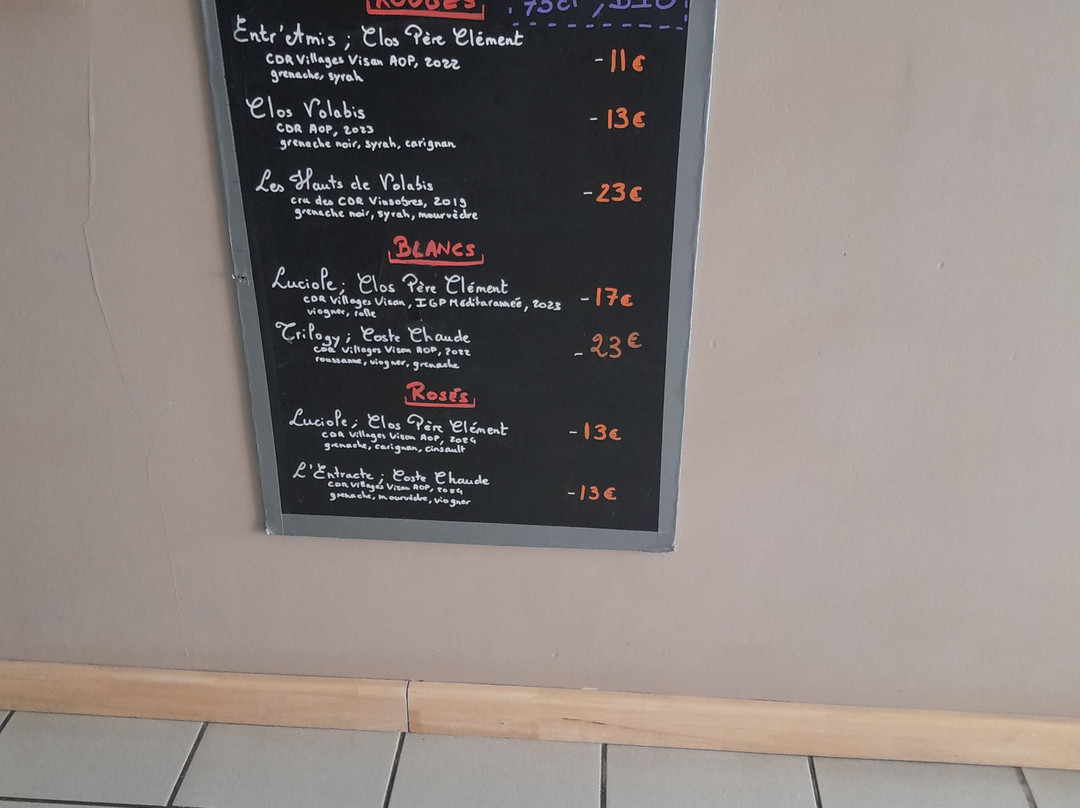 ROUGES 75cl, BIO
Entr'Amis ; Clos Père Clément -11€
CDR Villages Visan AOP, 2022
grenache, syrah
Clos Volabis -13€
CDR AOP, 2023
grenache noir, syrah, carignan
Les Hauts de Volabis -23€
cru des CDR Vinsobres, 2019
grenache noir, syrah, mourvèdre
BLANCS
Luciole ; Clos Père Clément -17€
CDR Villages Visan, IGP Méditarannée, 2023
viogner, rolle
Trilogy ; Coste Chaude -23€
CDR Villages Visan AOP, 2022
roussanne, viogner, grenache
ROSÉS
Luciole ; Clos Père Clément -13€
CDR Villages Visan AOP, 2024
grenache, carignan, cinsault
L'Entracte ; Coste Chaude -13€
CDR Villages Visan AOP, 2024
grenache, mourvèdre, viogner